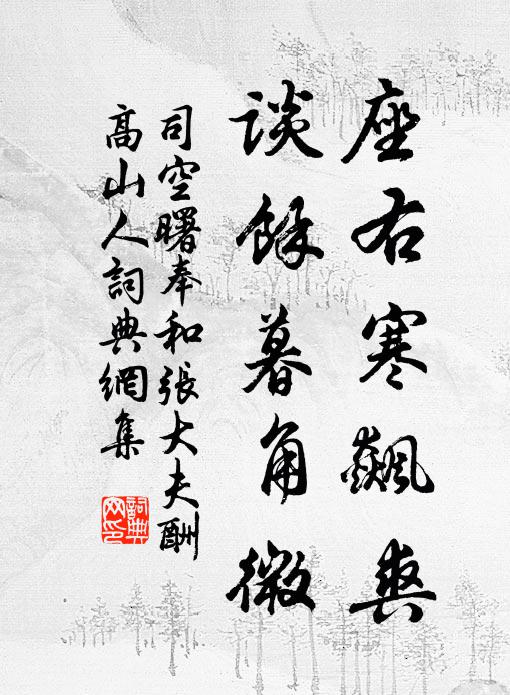 座右寒飆爽
談餘暮角微
司空曙奉和張大夫酬
高山人詞典網集
詞典網印